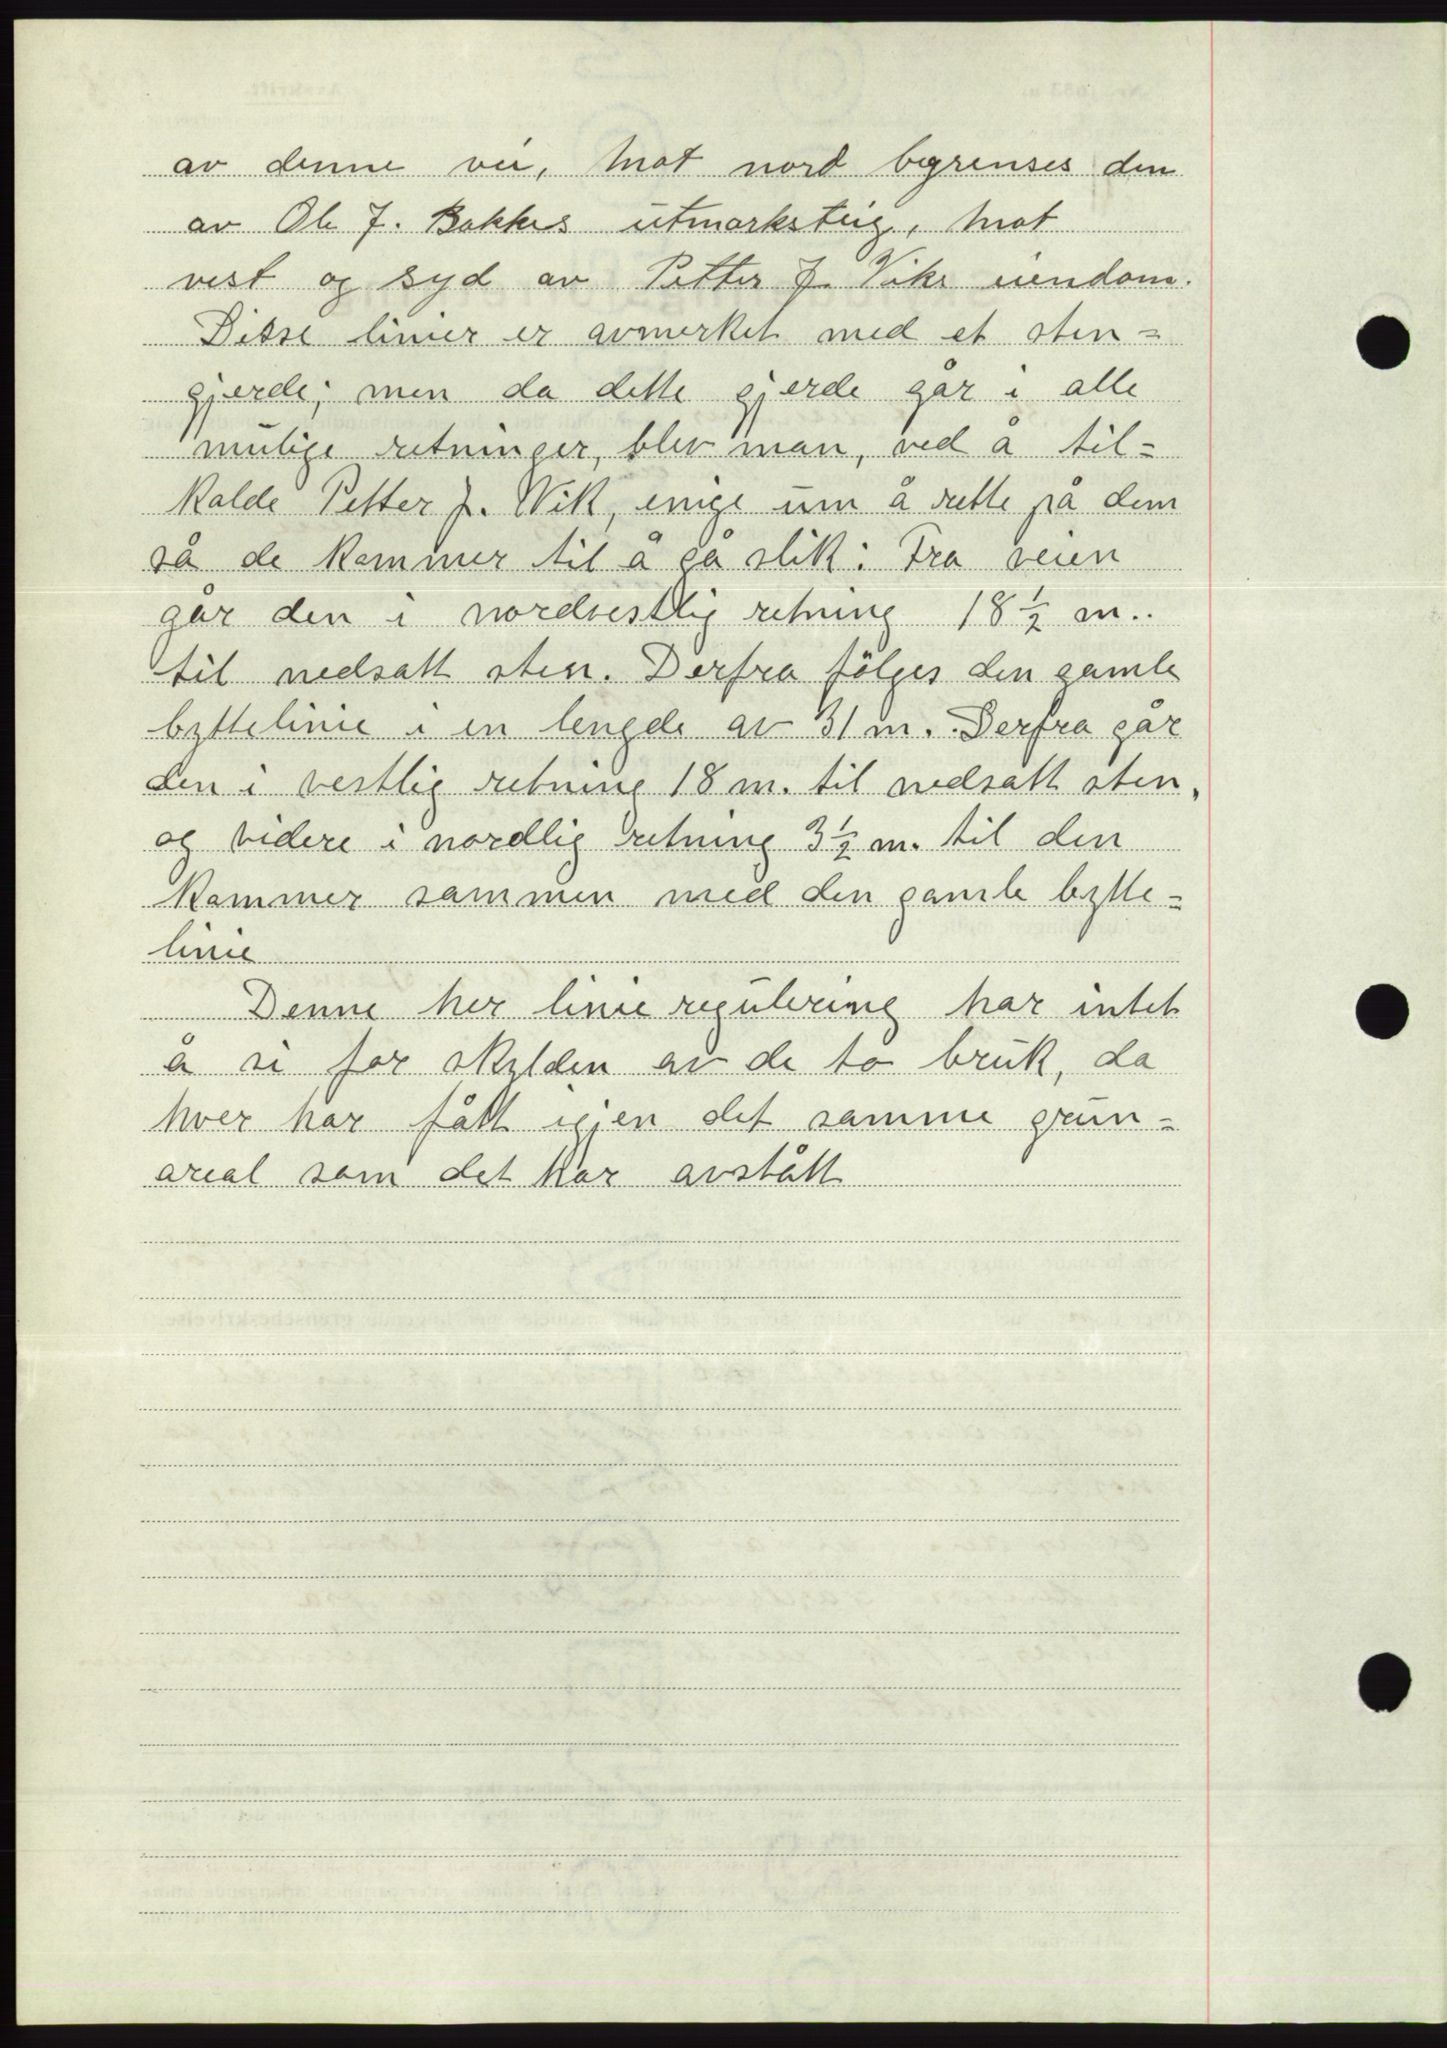 av denne vei, mot nord begrenses den
av Ole J. Bakkes utmarksteig, mot
vest og syd av Petter J. Viks eiendom.
Disse linier er avmerket med et sten=
gjerde; men da dette gjerde går i alle
mulige retninger, blev man, ved å til=
kalde Petter J. Vik, enige um å rette på dem
så de kommer til å gå slik: Fra veien
går den i nordvestlig retning 18 ½ m..
til nedsatt sten. Derfra fölges den gamle
byttelinie i en lengde av 31 m. Derfra går
den i vestlig retning 18 m. til nedsatt sten,
og videre i nordlig retning 3½ m. til den
kommer sammen med den gamle bytte=
linie
Denne her linieregulering har intet
å si for skylden av de to bruk, da
hver har fått igjen det samme grun=
areal som det har avstått